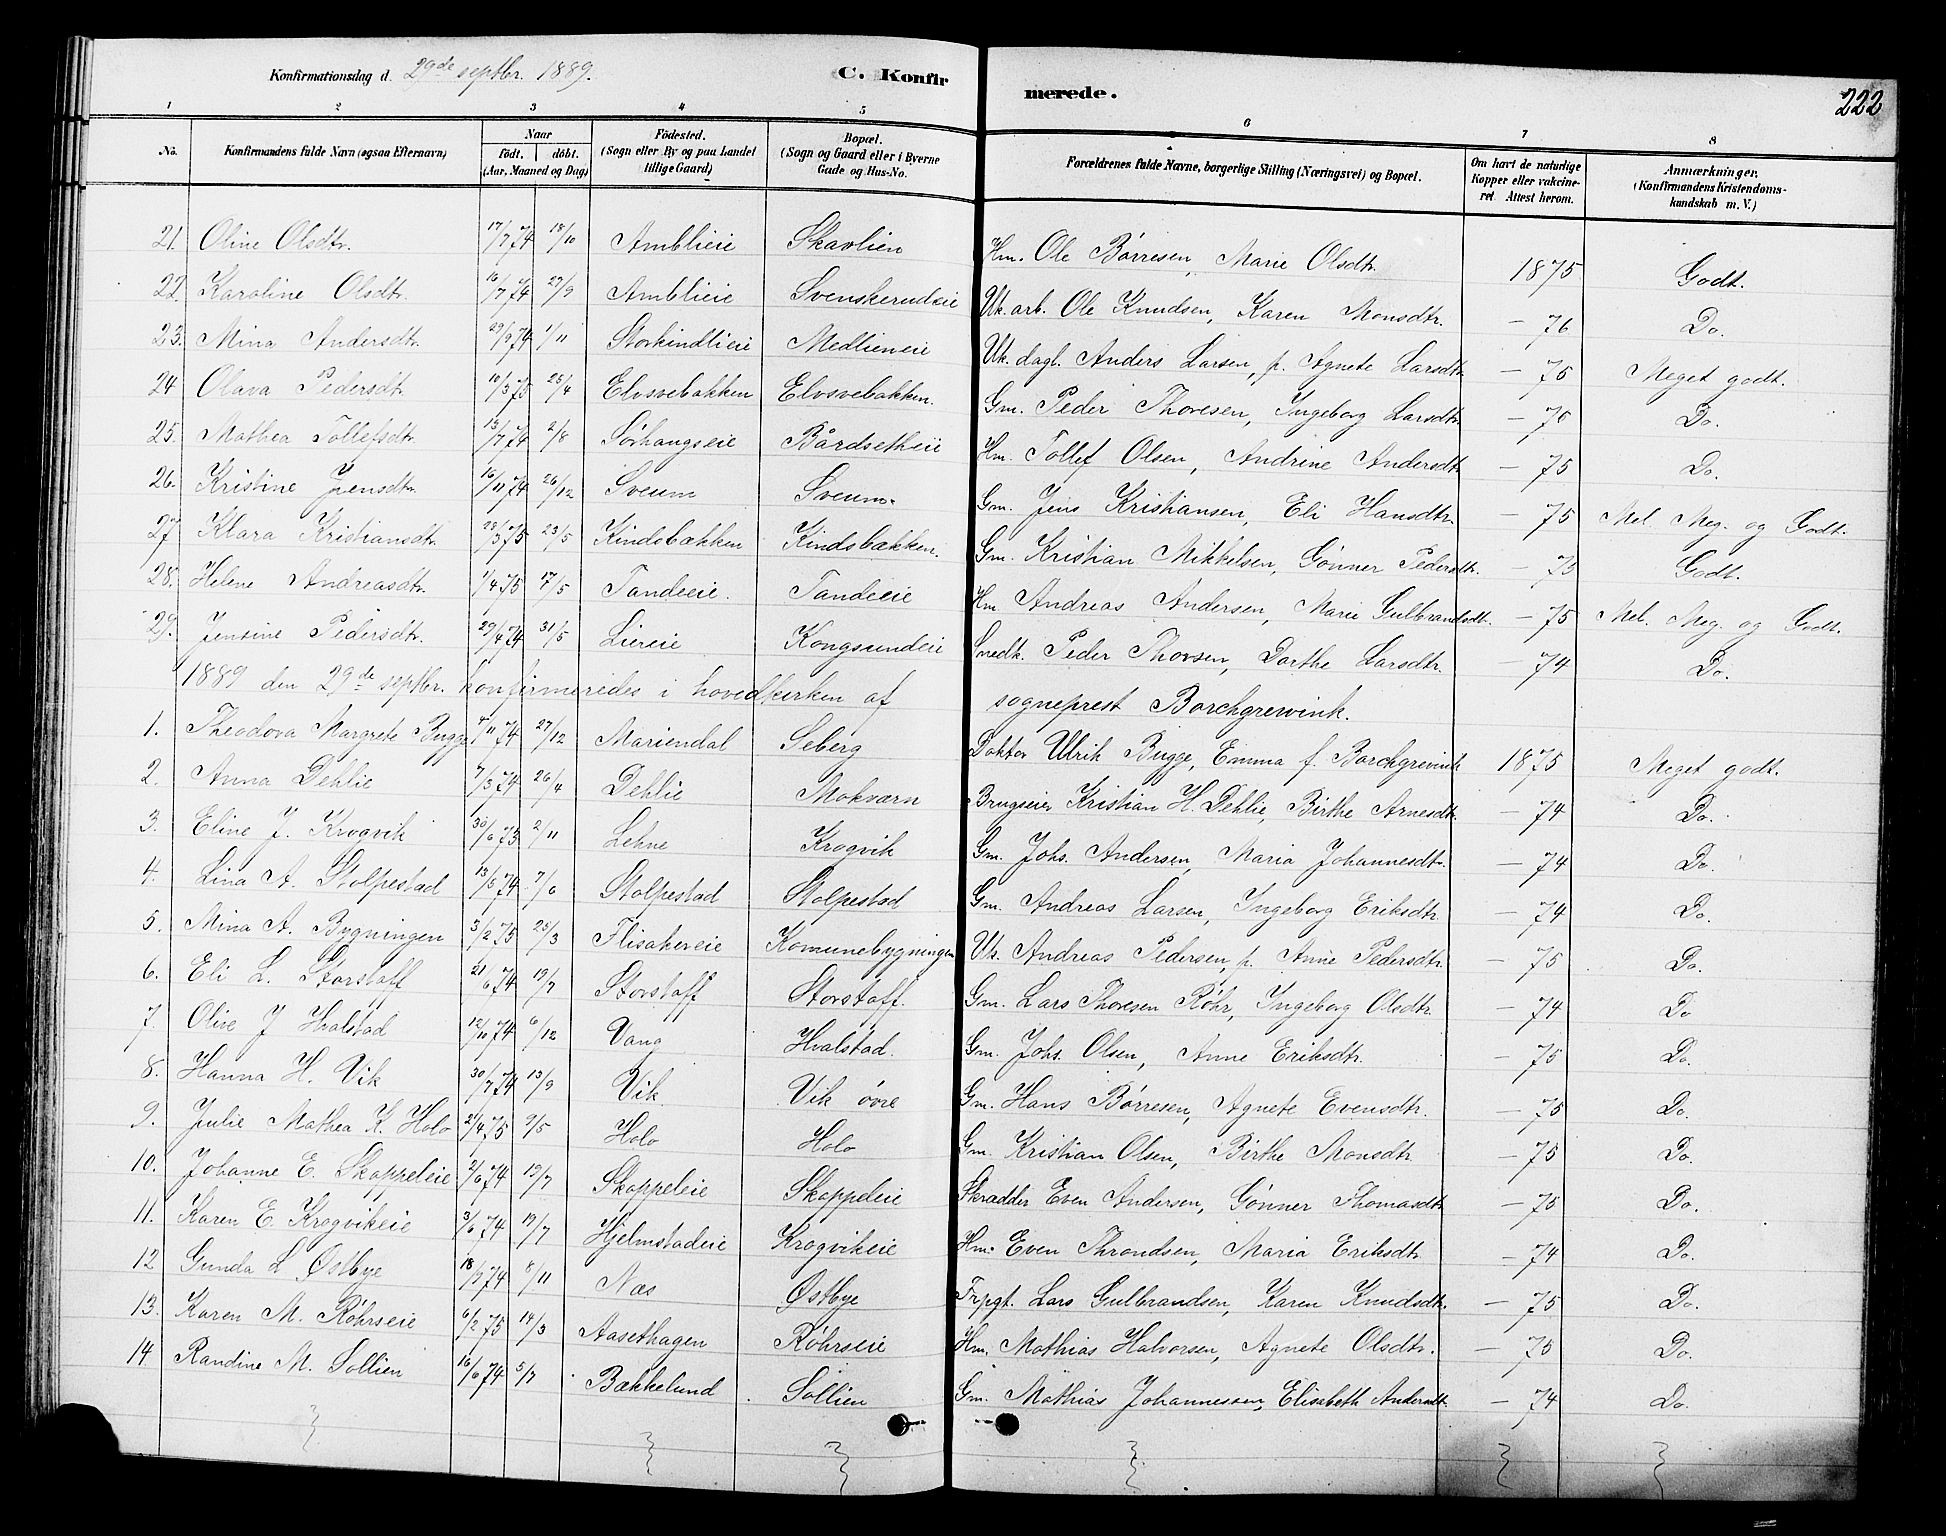 Konfirmationsdag d. 29de septbr. 1889.
C. Konfirmerede.
222
1 2 3 4 5 6 7 8
No.
Konfirmandens fulde Navn (ogsaa Efternavn)
Naar
födt. döbt.
(Aar, Maaned og Dag)
Födested.
(Sogn eller By og paa Landet
tillige Gaard)
Bopæl.
(Sogn og Gaard eller i Byerne
Gade og Hus-No.
Forældrenes fulde Navne, borgerlige Stilling (Næringsvei) og Bopæl.
Om havt de naturlige
Kopper eller vakcine-
ret. Attest herom.
Anmærkninger.
(Konfirmandens Kristendoms-
kundskab m. V.)
21. Oline Olsdtr. 17/7 74 18/10 Amblieie Skavlien Hm. Ole Börresen, Marie Olsdtr. 1875 Godt.
22. Karoline Olsdtr. 16/7 74 27/9 Amblieie Svenskerudeie Uk. arb. Ole Knudsen, Karen Monsdtr. — 76 Do.
23. Mina Andersdtr. 29/9 74 1/11 Storkindlieie Medlieneie Uk. dagl. Anders Larsen, p. Agnete Larsdtr. — 75 Meget godt.
24 Olava Pedersdt. 10/3 75 25/4 Elvsvebakken Elvsvebakken. Gm. Peder Thoresen, Ingeborg Larsdtr. — 75 Do.
25. Mathea Tollefsdtr. 13/7 74 2/8 Sörhangseie Bårdsetheie Hm. Tollef Olsen, Andrine Andersdtr — 75 Do.
26. Kristine Jensdtr. 16/11 74 26/12 Sveum Sveum. Gm. Jens Kristiansen, Eli Hansdtr. — 75 Mel. Meg. og Godt.
27 Klara Kristiansdtr. 28/3 75 23/5 Kindsbækken Kindsbækken. Gm. Kristian Mikkelsen, Gönner Pedersdtr. — 75 Godt.
28. Helene Andreasdtr. 1/4 75 17/5 Tandeeie. Tandeeie Hm Andreas Andersen, Marie Gulbrandsdt. — 75 Mel. Meg. og Godt.
29. Jensine Pedersdtr. 29/4 74 31/5 Liereie Kongsundeie Snedk. Peder Thorsen, Dorthe Larsdtr. — 74 Do.
1889 den 29de septbr. konfirmeredes i hovedkirken af sogneprest Borchgrewink.
1. Theodora Margrete Bugge 4/11 74 27/12 Mariendal Seberg Doktor Ulrik Bugge, Emma f. Borchgrevink 1875 Meget godt.
2. Anna Dehlie 7/3 74 26/4 Dehlie Mokværn Brugseier Kristian H. Dehlie, Birthe Arnesdtr. — 74 Do.
3. Eline J. Krogvik 30/6 75 2/11 Lehne Krogvik Gm. Johs. Andersen, Maria Johannesdtr. — 74 Do.
4. Lina A. Stolpestad 13/5 74 7/6 Stolpestad Stolpestad Gm. Andreas Larsen, Ingeborg Eriksdtr. — 74 Do.
5. Mina A. Bygningen 3/2 75 25/3 Flisakereie Komunebygningen Uk. Andreas Pedersen, p. Anne Pedersdtr. — 75 Do.
6. Eli L. Storstaff 21/6 74 19/7 Storstaff Storstaff. Gm. Lars Thoresen Röhr, Ingeborg Olsdtr. — 74 Do
7. Olive J Hvalstad 12/10 74 6/12 Vang Hvalstad. Gm. Johs. Olsen, Anne Eriksdtr. — 75 Do.
8. Hanna H. Vik 30/7 74 13/9 Vik Vik övre Gm. Hans Börresen, Agnete Evensdtr. — 75 Do.
9. Julie Mathea K. Holo 21/4 75 9/5 Holo Holo Gm. Kristian Olsen, Birthe Monsdtr. — 75 Do.
10. Johanne E. Skappeleie 2/6 74 19/7 Skappeleie Skappeleie Skrædder Even Andersen, Gönner Thomasdtr. — 75 Do.
11. Karen E. Krogvikeie 3/6 74 19/7 Hjelmstadeie Krogvikeie Hm. Even Throndsen, Maria Eriksdtr. — 74 Do.
12 Gunda L Østbye 18/9 74 8/11 Næs Østbye Frpgt. Lars Gulbrandsen, Karen Knudsdtr. — 75 Do.
13. Karen M. Röhrseie 6/2 75 14/3 Aasethagen Röhrseie Hm. Mathias Halvorsen, Agnete Olsdtr. — 75 Do.
14 Randine M. Sollien 16/6 74 5/7 Bækkelund Sollien Gm. Mathias Johannessen, Elisabeth Andersdt. — 74 Do.